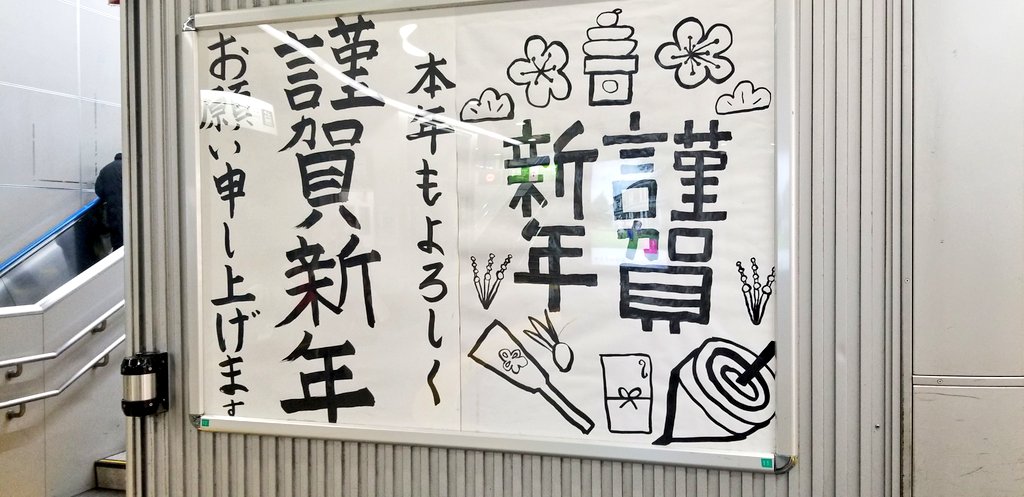 謹賀
新年
本年もよろしく
謹賀新年
お願い申し上げます